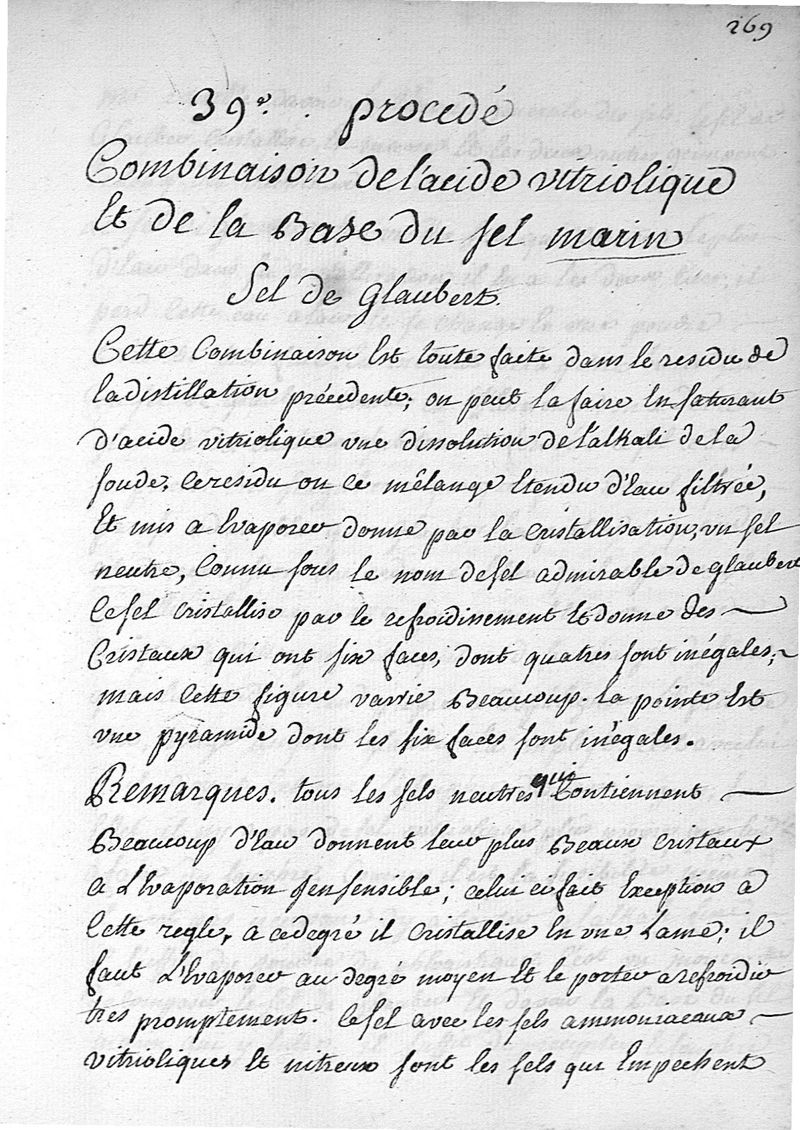 269
39e. procedé
Combinaison de l'acide vitriolique
Et de la Base du sel marin
Sel de Glaubert
Cette Combinaison Est toute faite dans le residu de
la distillation précedente; on peut la faire En saturant
d'acide vitriolique une dissolution de l'alkali de la
soude, ce residu ou ce mêlange Etendu d'Eau filtrée,
Et mis a Evaporer donne par la cristallisation, un sel
neutre, Connu sous le nom de sel admirable de glaubert
Ce sel cristallise par le refroidissement Et donne des
Cristaux qui ont six faces, dont quatres sont inégales;
mais Cette figure varrie Beaucoup. la pointe Est
une pyramide dont les six faces sont inégales.
Remarques. tous les sels neutres qui Contiennent
Beaucoup d'Eau donnent leur plus Beaux cristaux
a l'Evaporation insensible; celui ci fait Exception a
Cette regle, a ce degré il cristallise En une Lame; il
faut l'Evaporer au degré moyen Et le porter a refroidir
tres promptement. Ce sel avec les sels ammoniacaux
vitrioliques Et nitreux sont les sels qui Empechent